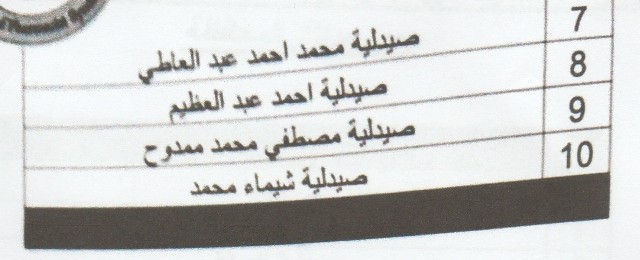 7 صيدلية محمد احمد عبد العاطي
8 صيدلية احمد عبد العظيم
9 صيدلية مصطفي محمد ممدوح
10 صيدلية شيماء محمد